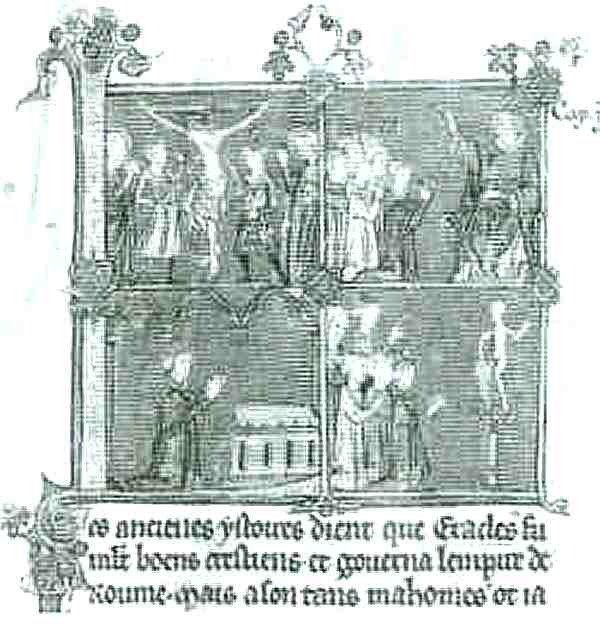 Cap.
Les ancienes ystoires dient que Eracles fu
mlt boens crestiens. et gouerna lempire de
Roume. mais a son tans mahomes ot ia